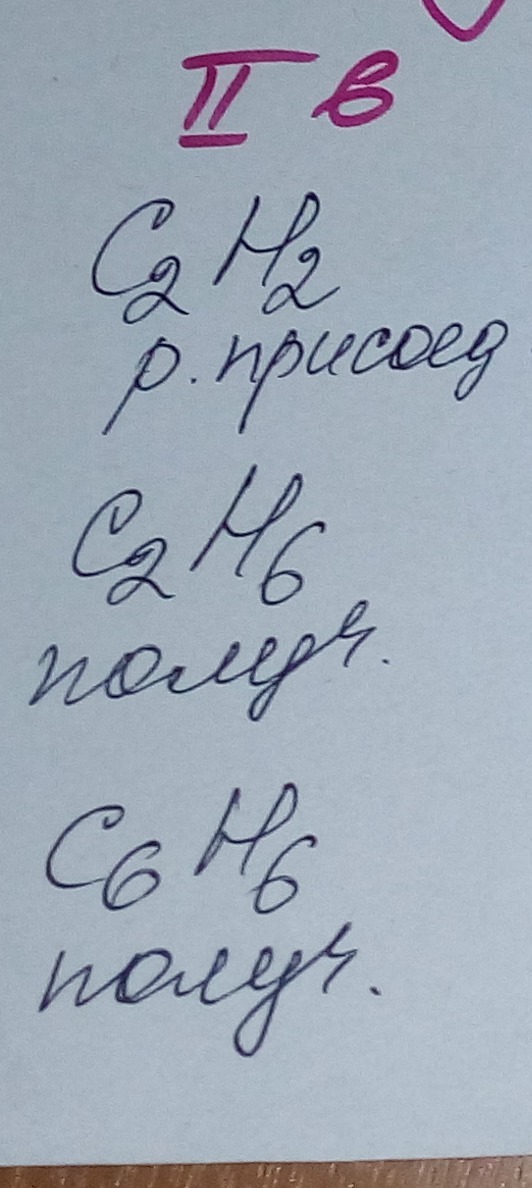 II в
C₂H₂
р. присоед
C₂H₆
получ.
C₆H₆
получ.